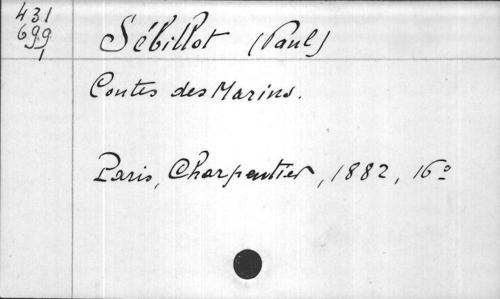 431
699
1
Sébillot (Paul)
Contes des Marins.
Paris, Charpentier, 1882, 16°